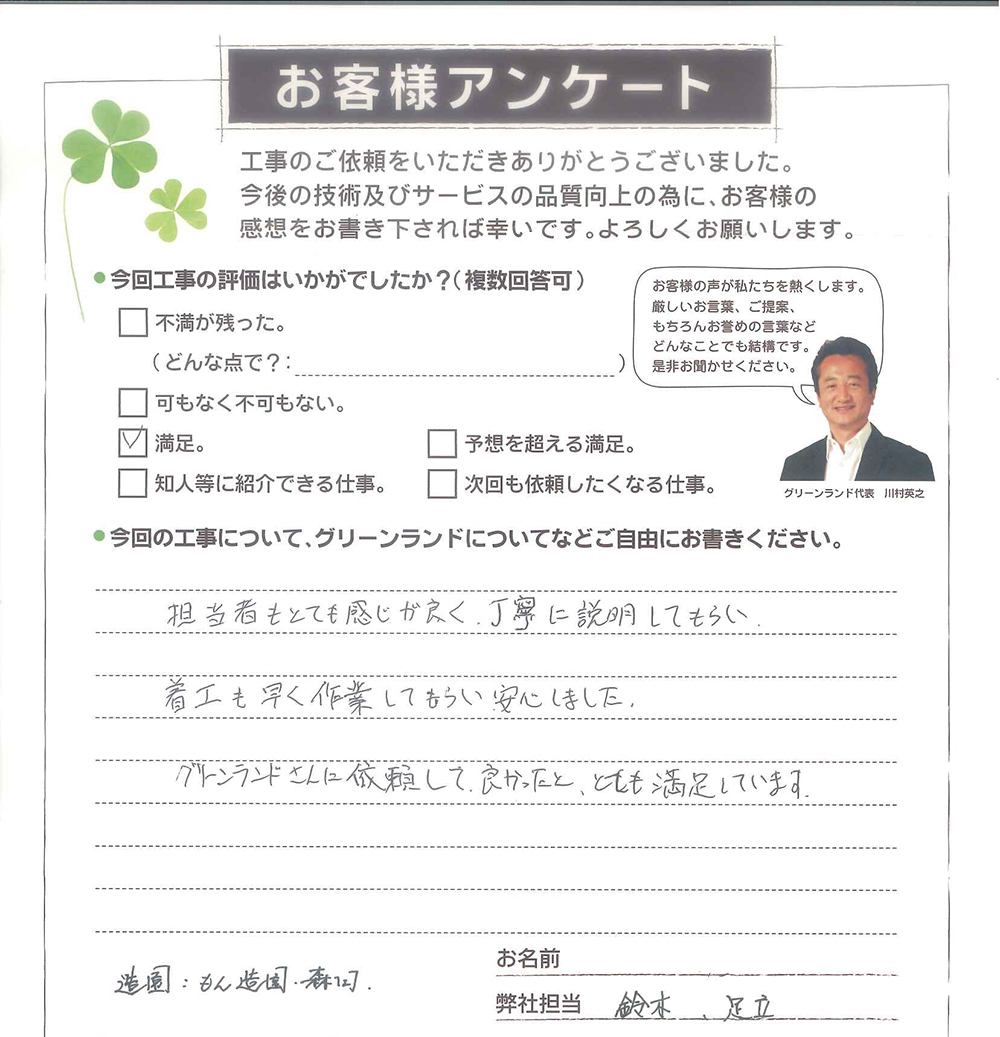 お客様アンケート
工事のご依頼をいただきありがとうございました。
今後の技術及びサービスの品質向上の為に、お客様の
感想をお書き下されば幸いです。よろしくお願いします。
●今回工事の評価はいかがでしたか？（複数回答可）
不満が残った。
（どんな点で？：　）
可もなく不可もない。
満足。
予想を超える満足。
知人等に紹介できる仕事。
次回も依頼したくなる仕事。
お客様の声が私たちを熱くします。
厳しいお言葉、ご提案、
もちろんお誉めの言葉など
どんなことでも結構です。
是非お聞かせください。
グリーンランド代表　川村英之
●今回の工事について、グリーンランドについてなどご自由にお書きください。
担当者もとても感じが良く、丁寧に説明してもらい、
着工も早く作業してもらい安心しました。
グリーンランドさんに依頼して、良かったと、とても満足しています。
造園：もん造園・森
お名前
弊社担当　鈴木、足立